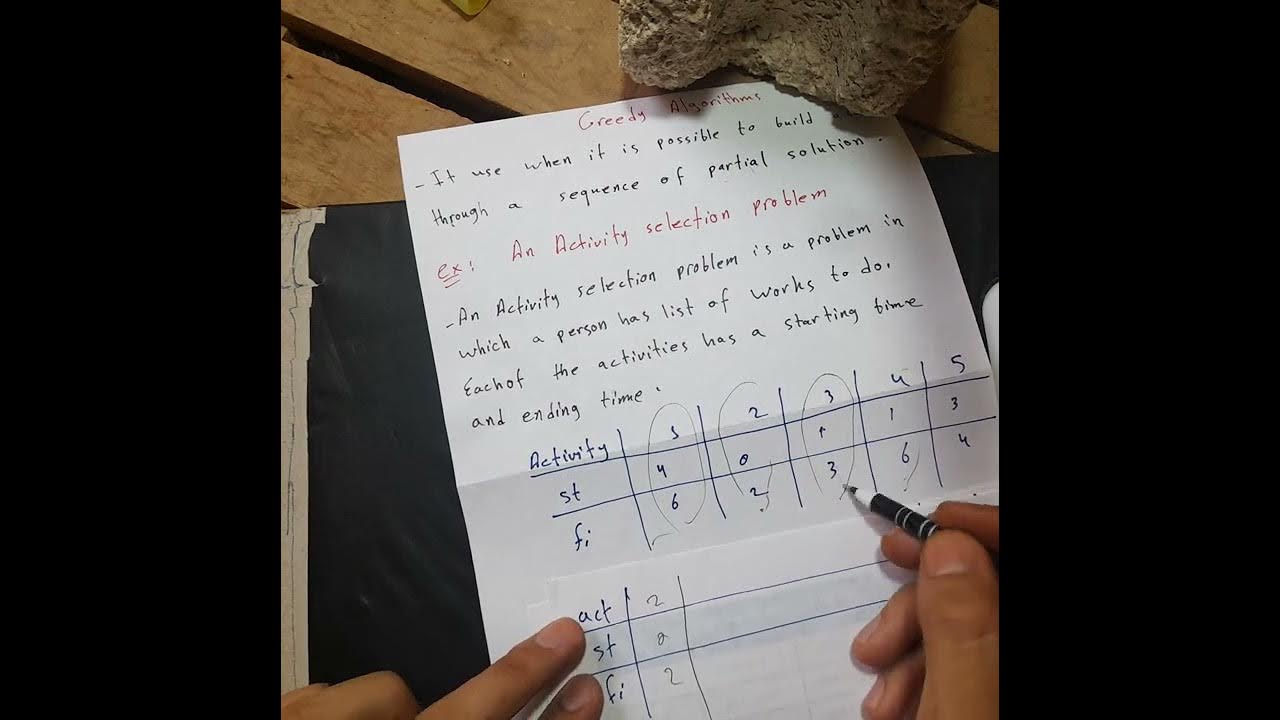 Greedy Algorithms
- It use when it is possible to build
through a sequence of partial solution.
ex: An Activity selection problem
- An Activity selection problem is a problem in
which a person has list of works to do.
Each of the activities has a starting time
and ending time.
Activity 2 3 4 5
st 4 0 1 1 3
fi 6 2 3 6 4
act 2
st 0
fi 2